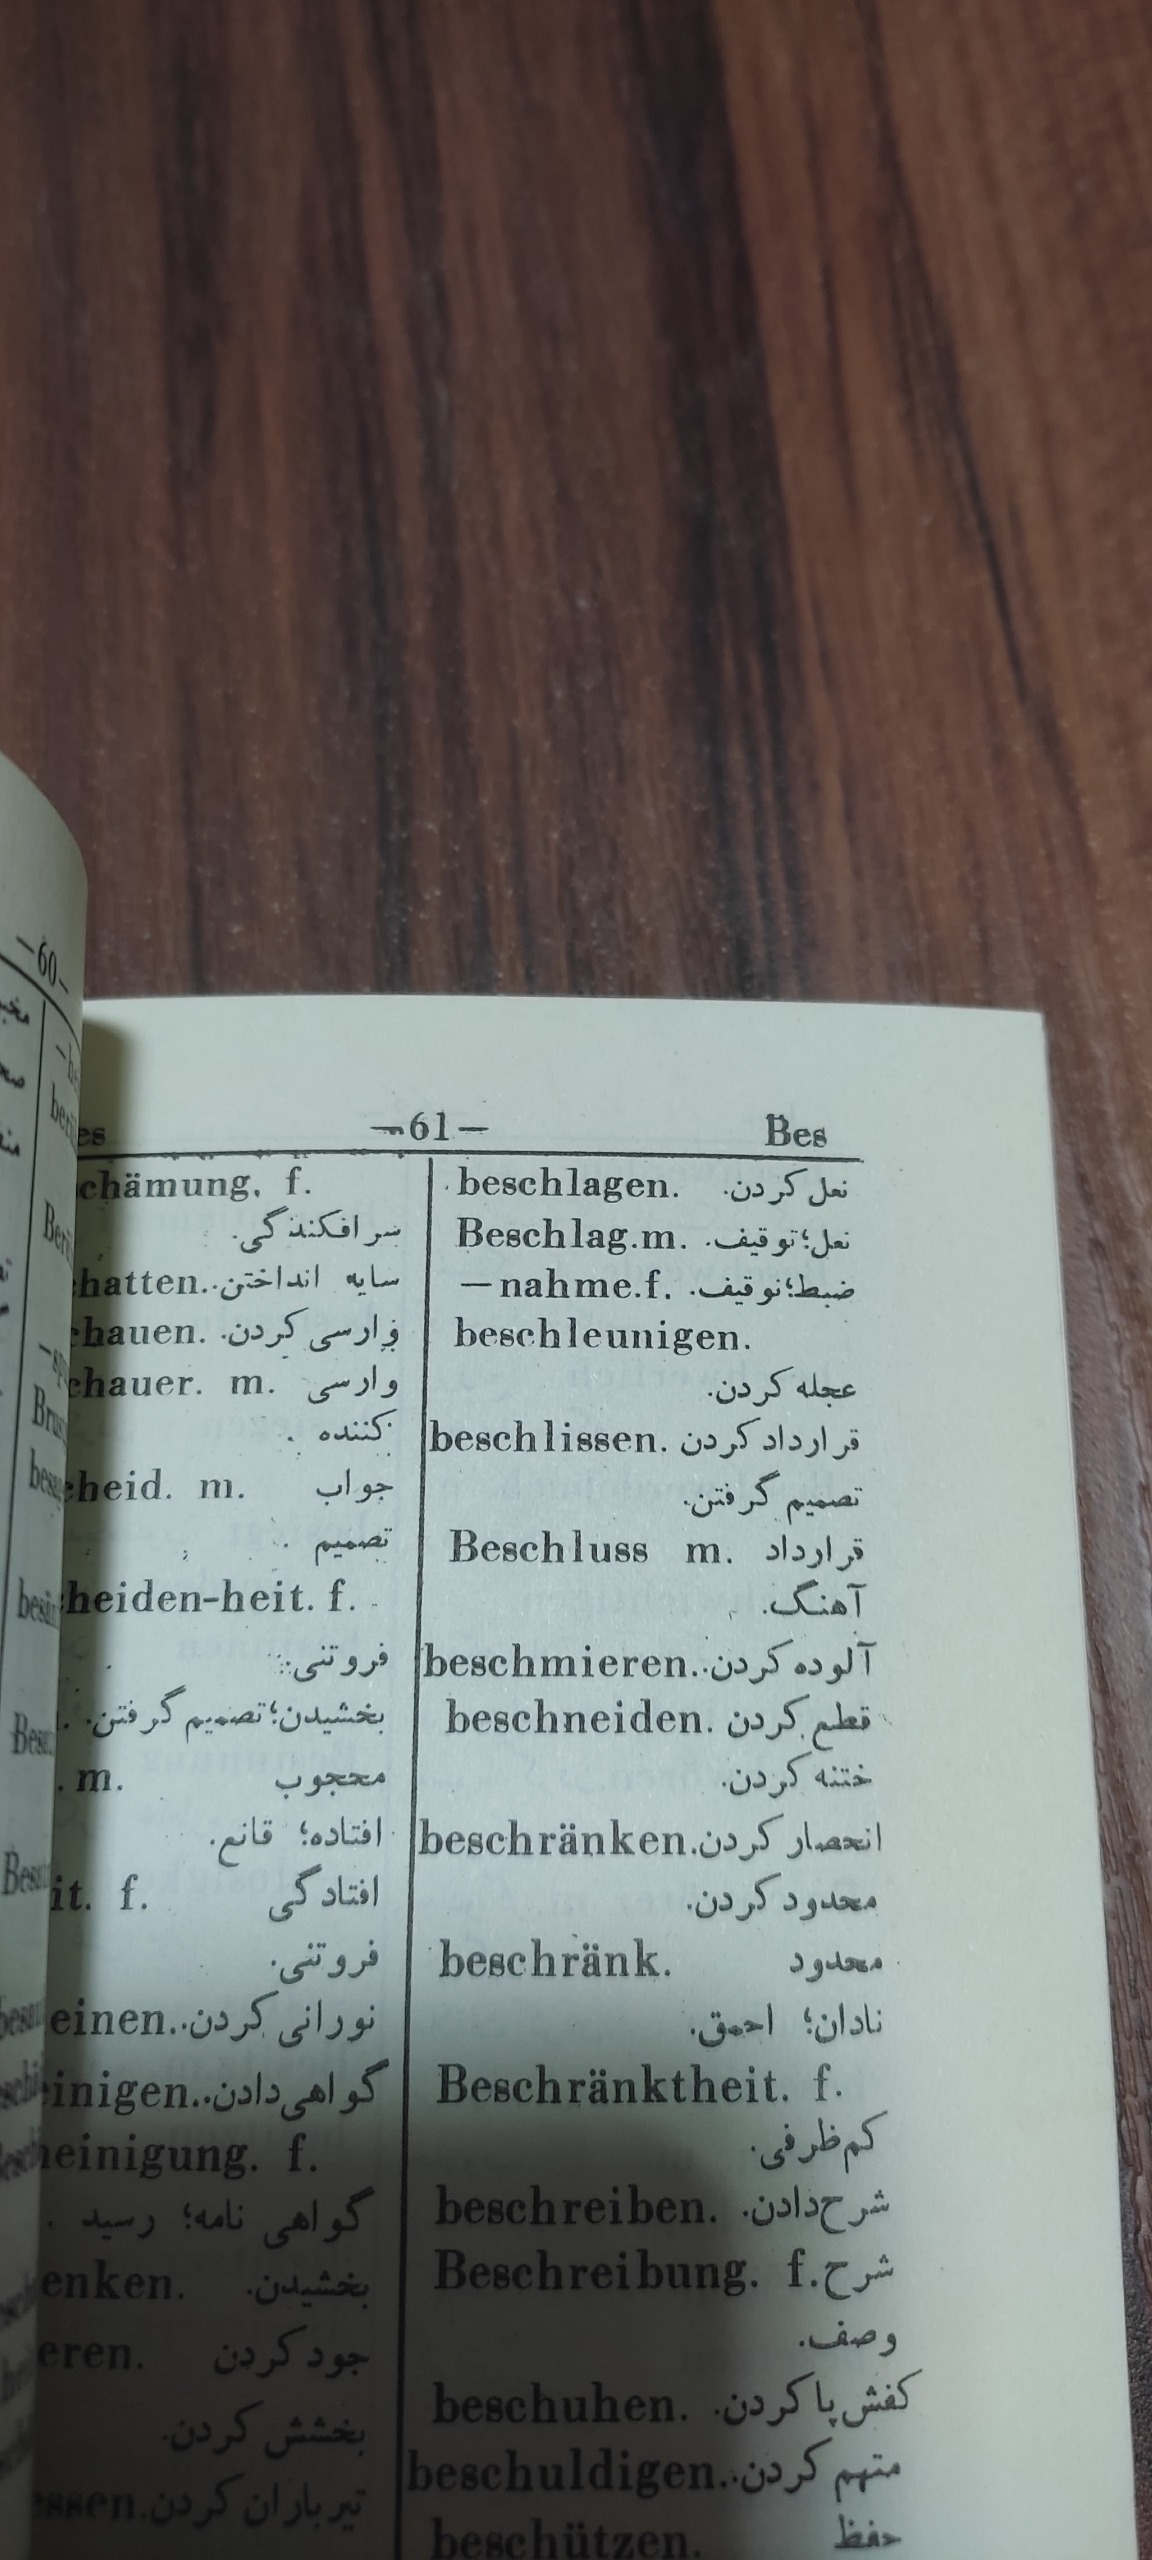 —60—
—61—
Bes
chämung. f.
سر افکندگی.
hatten. سایه انداختن.
chauen. وارسی کردن.
chauer. m. وارسی
کننده.
cheid. m. جواب
تصمیم.
heiden-heit. f.
فروتنی.
بخشیدن؛ تصمیم گرفتن.
. m. محجوب
افتاده؛ قانع.
it. f. افتادگی
فروتنی.
einen. نورانی کردن.
inigen. گواهی دادن.
heinigung. f.
گواهی نامه؛ رسید.
enken. بخشیدن.
eren. جود کردن
بخشش کردن.
ssen. تیرباران کردن.
beschlagen. نعل کردن.
Beschlag.m. نعل؛ توقیف.
—nahme.f. ضبط؛ توقیف.
beschleunigen.
عجله کردن.
beschlissen. قرارداد کردن
تصمیم گرفتن.
Beschluss m. قرارداد
آهنگ.
beschmieren. آلوده کردن.
beschneiden. قطع کردن
ختنه کردن.
beschränken. انحصار کردن.
محدود کردن.
beschränk. محدود
نادان؛ احمق.
Beschränktheit. f.
کم ظرفی.
beschreiben. شرح دادن.
Beschreibung. f. شرح
وصف.
beschuhen. کفش پا کردن.
beschuldigen. متهم کردن.
beschützen. حفظ